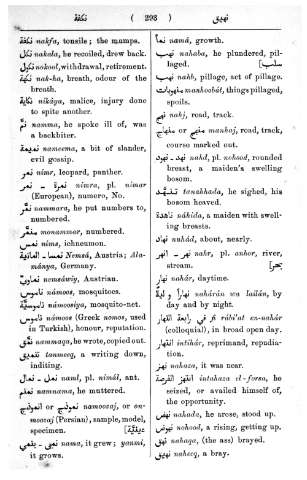 نكفة ( 293 ) نهيق
نكفة nakfa, tonsile; the mumps.
نكل nakala, he recoiled, drew back.
نكول nokool, withdrawal, retirement.
نكهة nak-ha, breath, odour of the
breath.
نكاية nikâya, malice, injury done
to spite another.
نم namma, he spoke ill of, was
a backbiter.
نميمة nameema, a bit of slander,
evil gossip.
نمر nimr, leopard, panther.
نمرة ـ نمر nimra, pl. nimar
(European), numero, No.
نمر nammara, he put numbers to,
numbered.
منمر monammar, numbered.
نمس nims, ichneumon.
نمسا ـ المانية Nemsá, Austria; Ala-
mánya, Germany.
نمساوي nemsáwiy, Austrian.
ناموس námoos, mosquitoes.
ناموسية námoosiya, mosquito-net.
ناموس námoos (Greek nomos, used
in Turkish), honour, reputation.
نمق nammaqa, he wrote, copied out.
تنميق tanmeeq, a writing down,
inditing.
نمل ـ نمال naml, pl. nimâl, ant.
نمنم namnama, he muttered.
نموذج or انموذج namoozaj, or on-
moozaj (Persian), sample, model,
specimen.
نما ـ ينمي nama, it grew; yanmi,
it grows.
نماء namá, growth.
نهب nahaba, he plundered, pil-
laged.
نهب nahb, pillage, act of pillage.
منهوبات manhoobât, things pillaged,
spoils.
نهج nahj, road, track.
منهج or منهاج manhaj, road, track,
course marked out.
نهد ـ نهود nahd, pl. nohood, rounded
breast, a maiden's swelling
bosom.
تنهد tanahhada, he sighed, his
bosom heaved.
ناهدة náhida, a maiden with swell-
ing breasts.
نهاد nuhád, about, nearly.
نهر ـ انهر nahr, pl. anhor, river,
stream.
نهار nahár, daytime.
نهارا و ليلا nahárán wa lailán, by
day and by night.
في رابعة النهار fi râbi'at en-nahár
(colloquial), in broad open day.
انتهار intihár, reprimand, repudia-
tion.
نهز nahaza, it was near.
انتهز الفرصة intahaza el-forsa, he
seized, or availed himself of,
the opportunity.
نهض nahada, he arose, stood up.
نهوض nohood, a rising, getting up.
نهق nahaqa, (the ass) brayed.
نهيق naheeq, a bray.